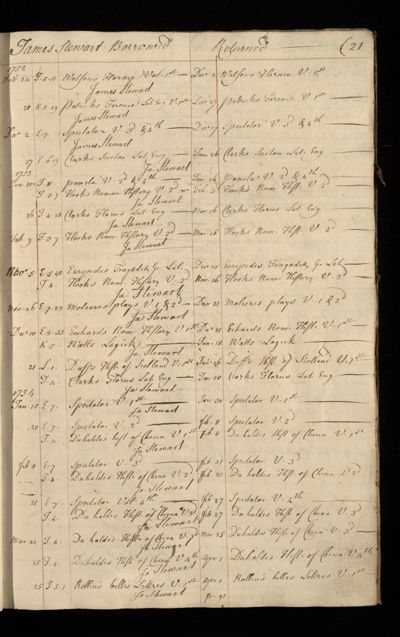 James Stewart Borrowed Returned (21
1752
24 Watsons Horace Vol. 1st — Decr 2 Watsons Horace V. 1st
James Stewart
28 Patricks Terence Lat Eng V. 1st Decr 27 Patricks Terence V. 1st
James Stewart
Decr 2 E.7 Spectator V. 3d & 4th — Decr 27 Spectator V. 3d & 4th
James Stewart
27 Clarks Sueton Lat Eng — Janr 26 Clarks Sueton Lat. Eng
1753 Ja: Stewart
Pamela V. 3d & 4th — Pamela V. 3d & 4th
T.3.7 Hooks Roman History V. 2d Feb 3 Hooks Rom. Hist. V. 2
Ja: Stewart
26 Clarks Florus Lat. Eng — Mar 16 Clarks Florus Lat Eng
Ja: Stewart
Feb. 9 T.3.7 Hooks Rom. History V. 3d — Mar 16 Hooks Rom. Hist. V. 3
Ja: Stewart
Novr 5 Euripides Tragedies Gr. Lat. Decr 10 Euripides Tragedies Gr Lat
T.4. Hooks Rom: History V. 3d Nov. 26 Hooks Rom: History V. 3d
Ja: Stewart
Nov. 26 Molieres plays V. 1 & 2d — Decr 21 Molieres plays V. 1 & 2d
Ja: Stewart
Decr 10 Echards Rom: History V. 1st Decr 21 Echards Rom: Hist. V. 1st
Watts Logick Janr 18 Watts Logick
Ja: Stewart
21 L.1. Duffs Hist. of Scotland V. 1st Duffs Hist. of Scotland V. 1st
T.4. Clarks Florus Lat Eng — Janr 10 Clarks Florus Lat. Eng
1754 Ja: Stewart
Janr 10 E.7. Spectator V. 1st Jan 30 Spectator V. 1st
Ja Stewart
30 E.7. Spectator V. 2d Feb. 8 Spectator V. 2d
T.4. Duhaldes hist. of China V. 1st Feb 8 Du haldes Hist. of China V. 1st
Ja: Stewart
Feb 8 E.7 Spectator V. 3d Feb 21 Spectator V. 3d
T.4. Duhaldes Hist. of China V. 2d Feb 21 Du haldes Hist. of China V. 2d
Ja: Stewart
21 E.7. Spectator Vol 4th Feb 27 Spectator V. 4th
T.4. Du haldes Hist. of China V. 3d Feb 27 Du haldes Hist. of China V. 3
Ja: Stewart
Mar 21 T.4. Du haldes Hist. of China V. 3 Mar 25 Duhaldes Hist. of China V. 3
Ja Stewart
25 T.4. Duhaldes Hist. of China V. 4th Apr 1 Duhaldes Hist. of China V. 4th
Ja: Stewart
25 Rollins belles Lettres V. 1st Apr 1 Rollins belles Lettres V. 1st
Ja: Stewart